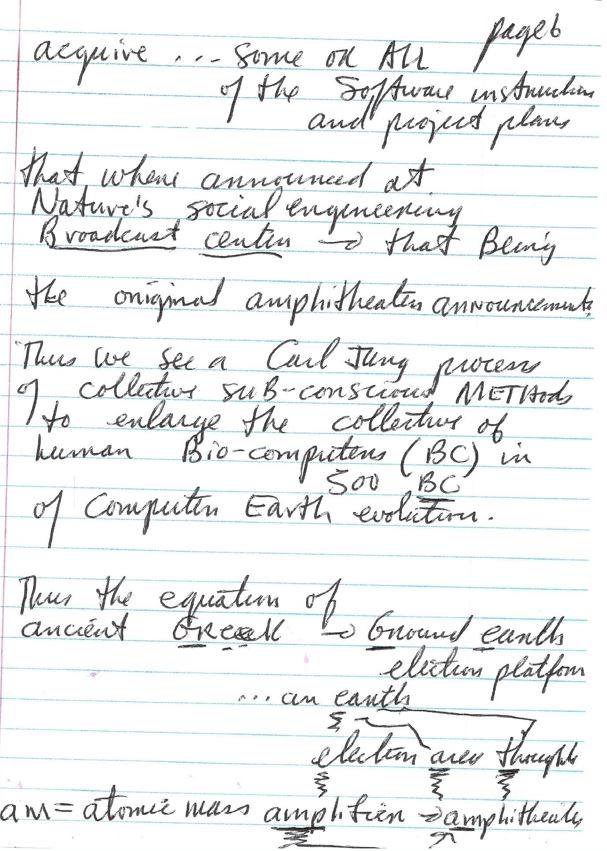 page 6
acquire ... Some OR ALL
of the Software instructions
and project plans
that where announced at
Nature's social engineering
Broadcast center → that Being
the original amphitheater announcements.
Thus we see a Carl Jung process
of collective SUB-conscious METHods
to enlarge the collective of
human Bio-computers (BC) in
500 BC
of Computer Earth evolution.
Thus the equation of
ancient GReeK → Ground earth
electron platform
... an earth
electron area thoughts
am = atomic mass amplifier → amphitheater